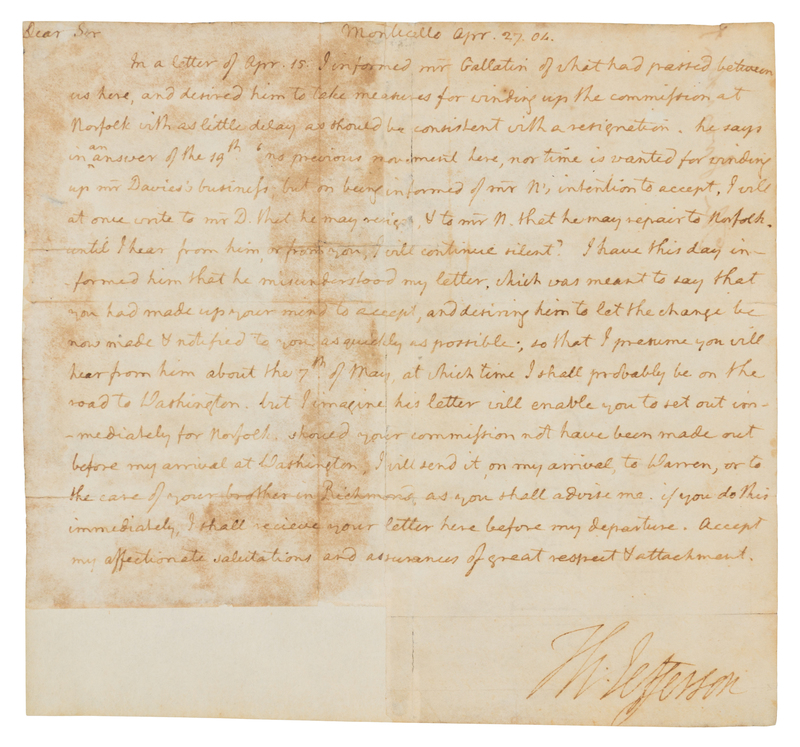 Dear Sir Monticello Apr. 27. 04.
In a letter of Apr. 15. I informed mr Gallatin of what had passed between
us here, and desired him to take measures for winding up the commission at
Norfolk with as little delay as should be consistent with a resignation. he says
in an answer of the 19th 'no previous movement here, nor time is wanted for winding
up mr Davies's business, but on being informed of mr N's intention to accept, I will
at once write to mr D. that he may resign, & to mr N. that he may repair to Norfolk.
until I hear from him, or from you, I will continue silent'. I have this day in-
-formed him that he misunderstood my letter, which was meant to say that
you had made up your mind to accept, and desiring him to let the change be
now made & notified to you as quickly as possible; so that I presume you will
hear from him about the 7th of May, at which time I shall probably be on the
road to Washington. but I imagine his letter will enable you to set out im-
-mediately for Norfolk. should your commission not have been made out
before my arrival at Washington, I will send it, on my arrival, to Warren, or to
the care of your brother in Richmond, as you shall advise me. if you do this
immediately, I shall recieve your letter here before my departure. Accept
my affectionate salutations and assurances of great respect & attachment.
Th: Jefferson